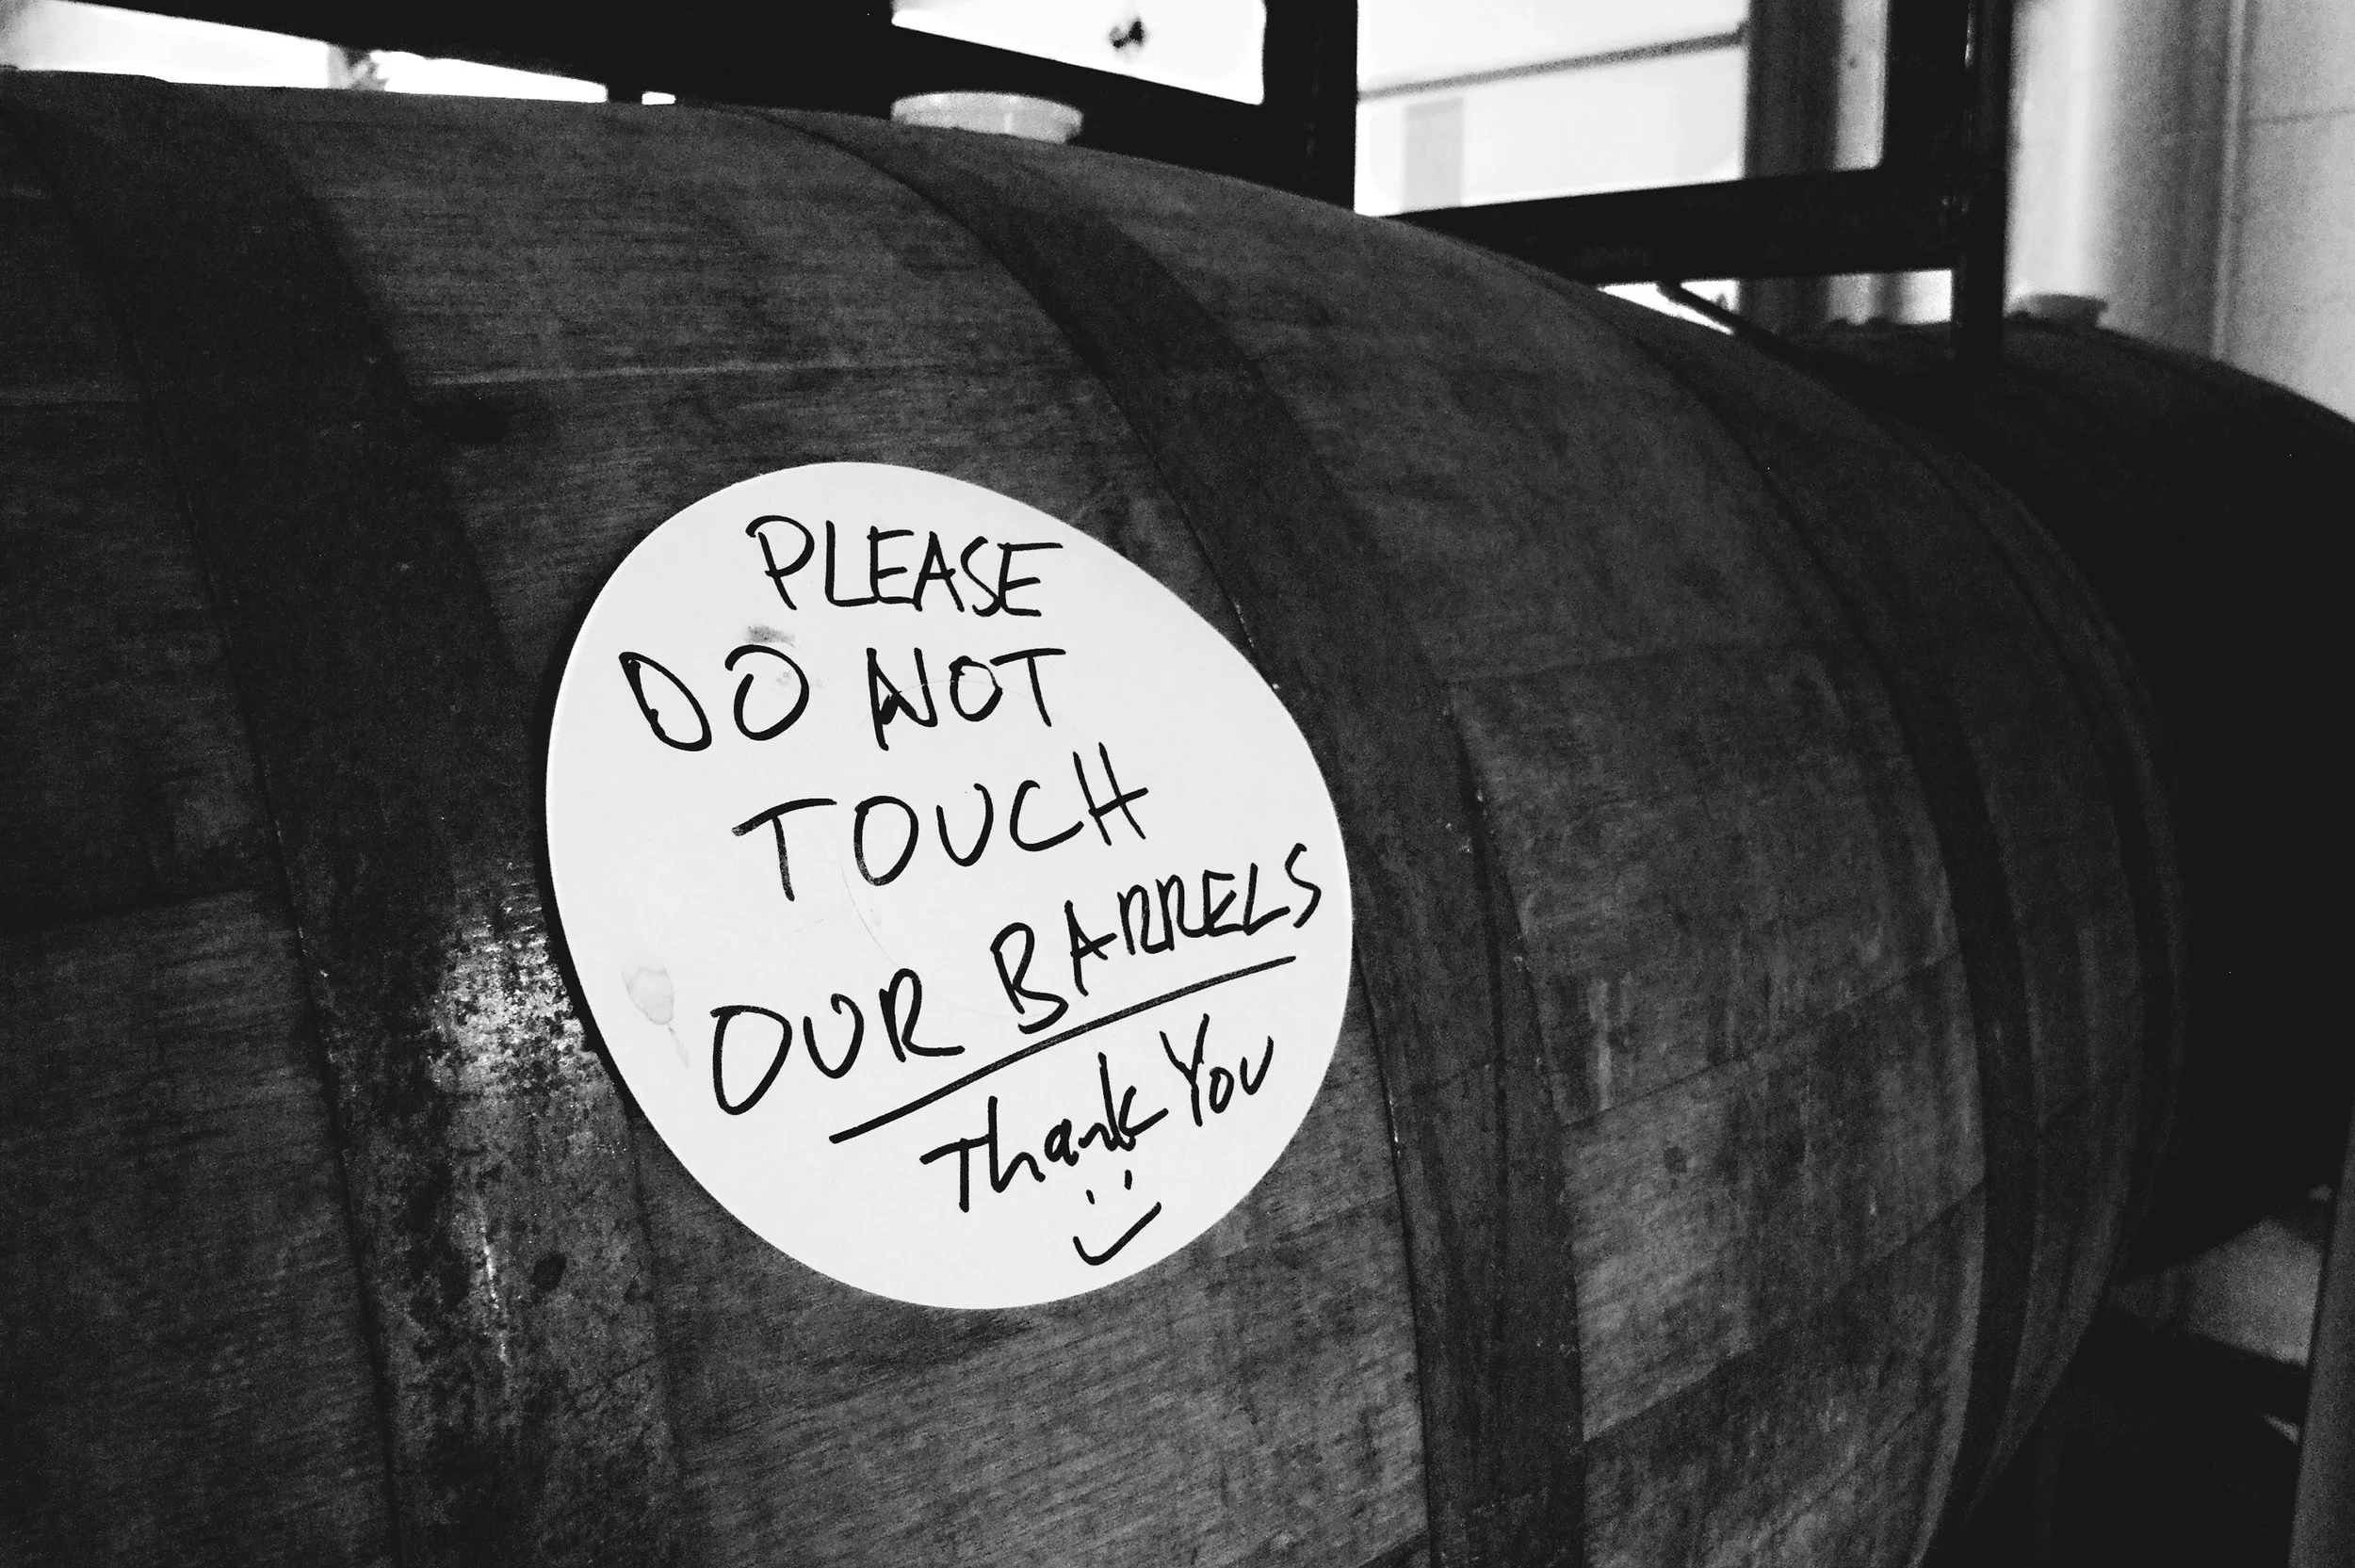 PLEASE
DO NOT
TOUCH
OUR BARRELS
Thank You